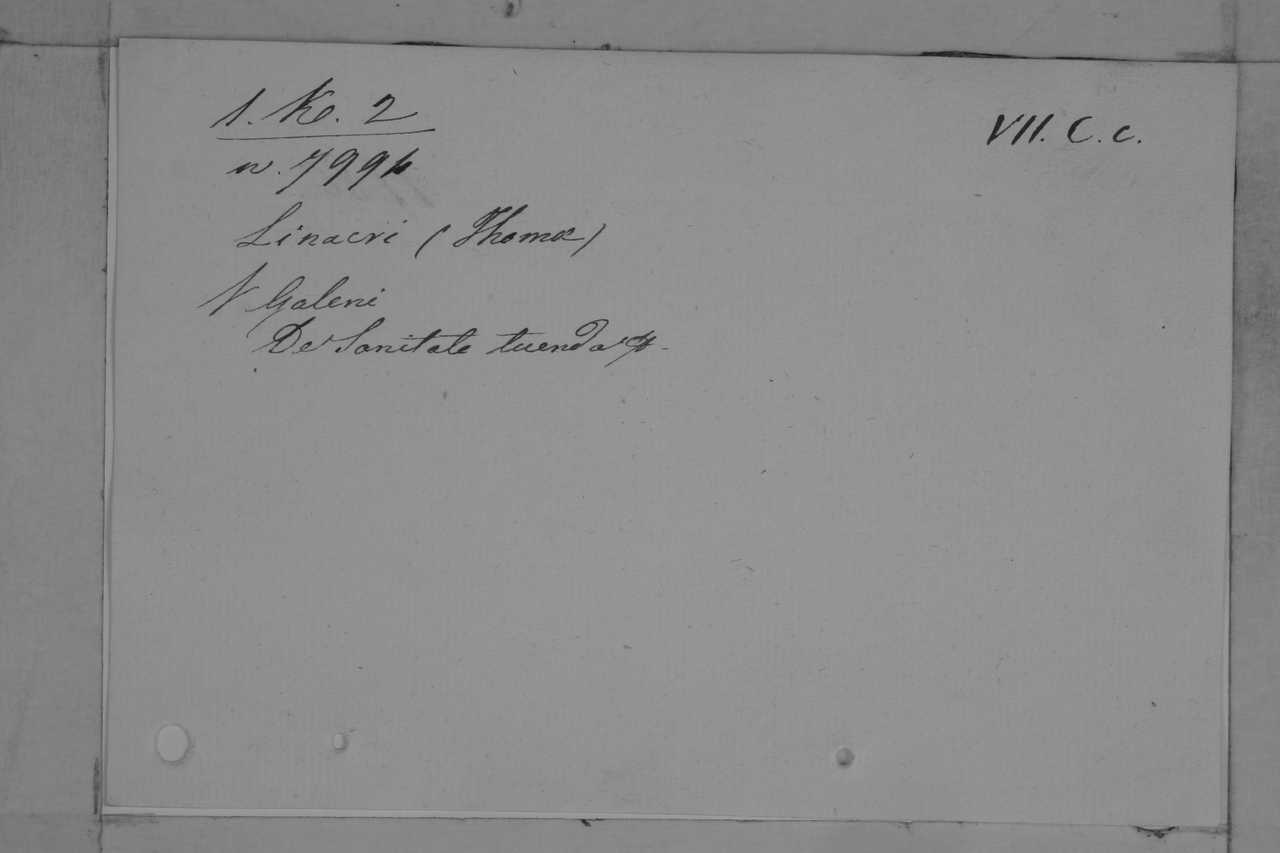 1. K. 2
VII. C. c.
n. 7994
Linacri (Thomæ)
V Galeni
De Sanitate tuenda